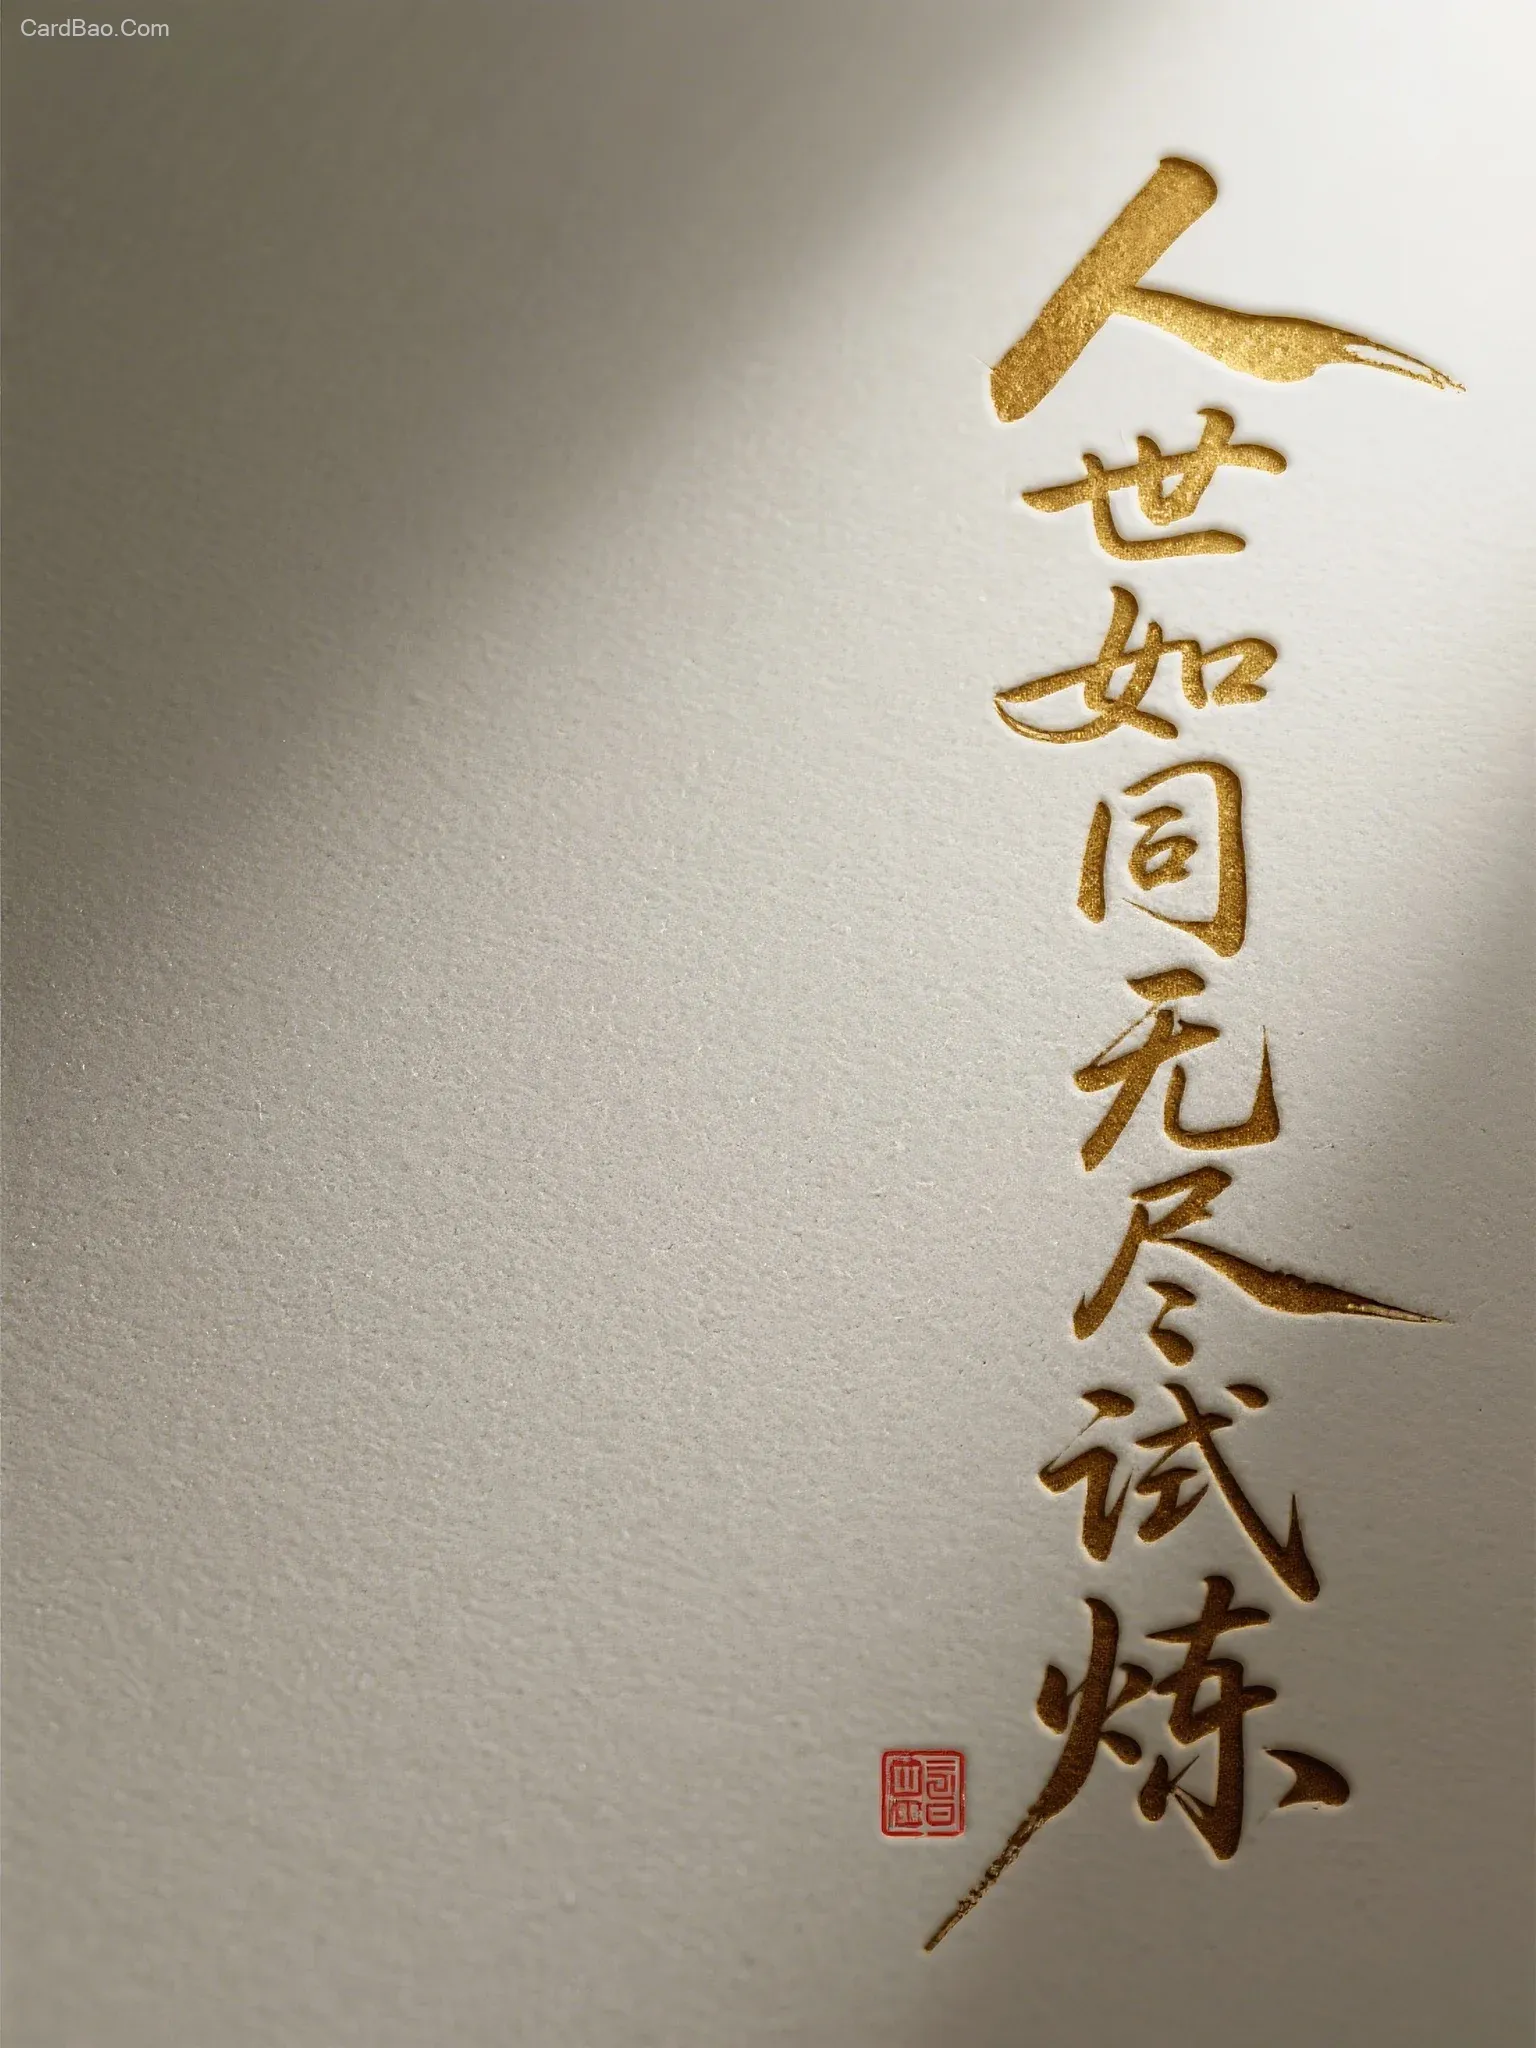 CardBao.Com
人世如同无尽试炼